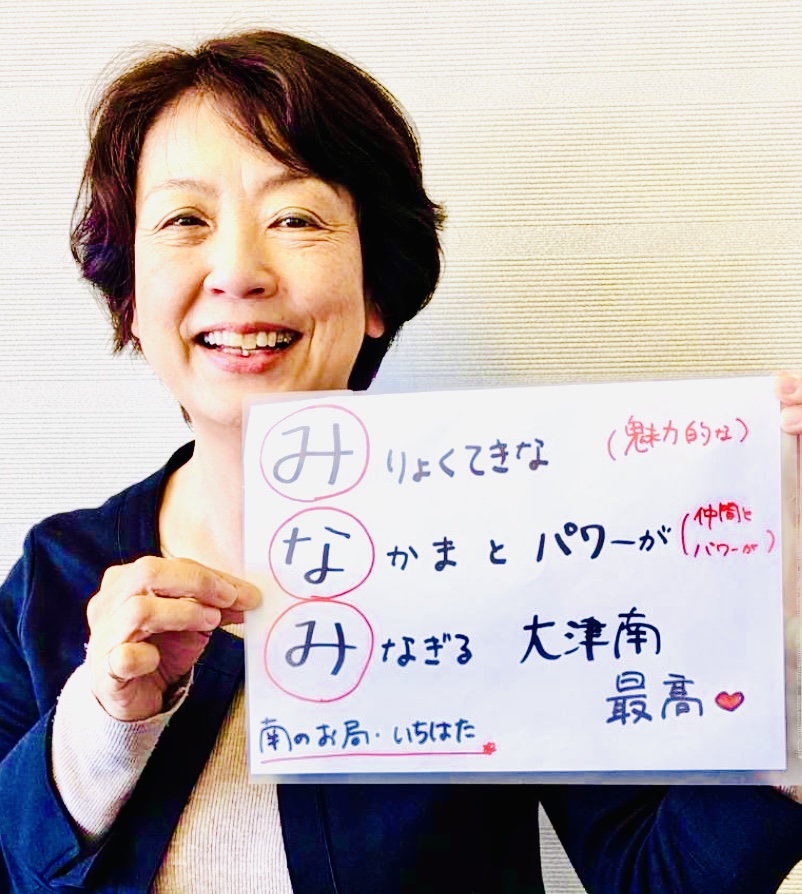 みりょくてきな (魅力的な)
なかまとパワーが (仲間とパワーが)
みなぎる 大津南
最高
南のお局・いちはた